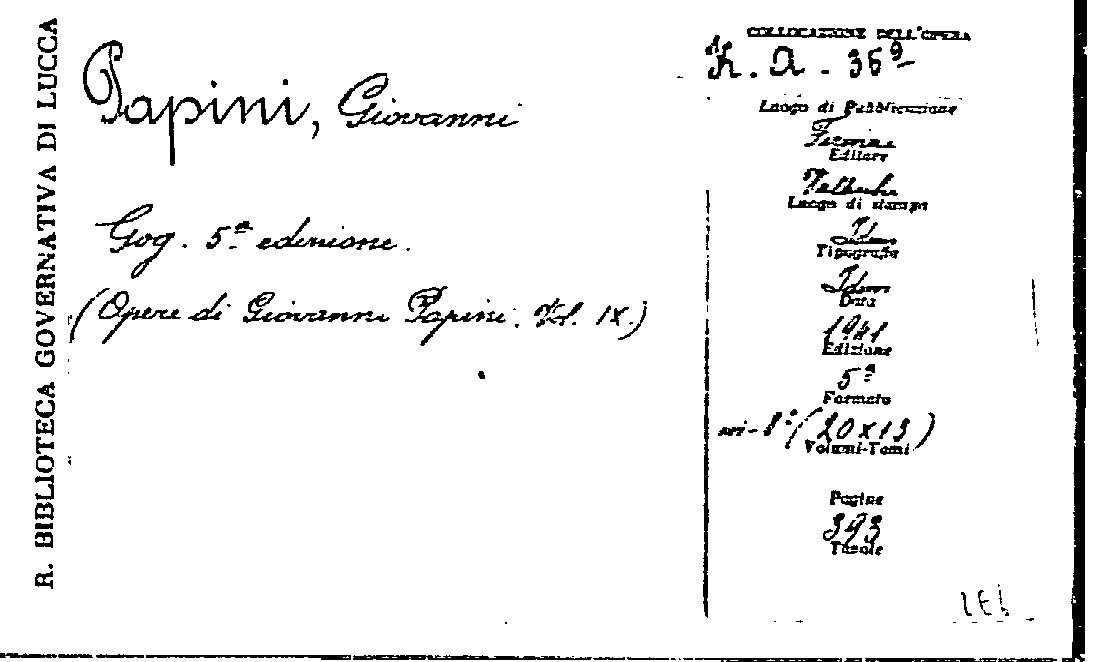 R. BIBLIOTECA GOVERNATIVA DI LUCCA
Papini, Giovanni
Gog. 5ª edizione.
(Opere di Giovanni Papini. Vol. IX.)
COLLOCAZIONE DELL'OPERA
K. A. 36
Luogo di Pubblicazione
Firenze
Editore
Vallecchi
Luogo di stampa
Id.
Tipografia
Idem
Data
1941
Edizione
5ª
Formato
8° (20x13)
Volumi-Tomi
Pagine
393
Tavole